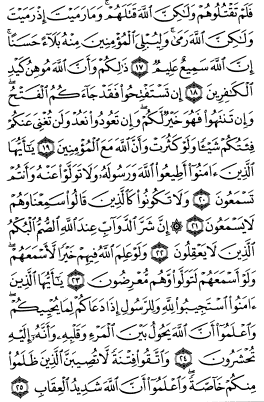 فَلَمْ تَقْتُلُوهُمْ وَلَٰكِنَّ ٱللَّهَ قَتَلَهُمْ ۚ وَمَا رَمَيْتَ إِذْ رَمَيْتَ
وَلَٰكِنَّ ٱللَّهَ رَمَىٰ ۚ وَلِيُبْلِىَ ٱلْمُؤْمِنِينَ مِنْهُ بَلَآءً حَسَنًا ۚ
إِنَّ ٱللَّهَ سَمِيعٌ عَلِيمٌ ۝١٧ ذَٰلِكُمْ وَأَنَّ ٱللَّهَ مُوهِنُ كَيْدِ
ٱلْكَٰفِرِينَ ۝١٨ إِن تَسْتَفْتِحُوا۟ فَقَدْ جَآءَكُمُ ٱلْفَتْحُ ۖ
وَإِن تَنتَهُوا۟ فَهُوَ خَيْرٌ لَّكُمْ ۖ وَإِن تَعُودُوا۟ نَعُدْ وَلَن تُغْنِىَ عَنكُمْ
فِئَتُكُمْ شَيْـًٔا وَلَوْ كَثُرَتْ وَأَنَّ ٱللَّهَ مَعَ ٱلْمُؤْمِنِينَ ۝١٩ يَٰٓأَيُّهَا
ٱلَّذِينَ ءَامَنُوٓا۟ أَطِيعُوا۟ ٱللَّهَ وَرَسُولَهُۥ وَلَا تَوَلَّوْا۟ عَنْهُ وَأَنتُمْ
تَسْمَعُونَ ۝٢٠ وَلَا تَكُونُوا۟ كَٱلَّذِينَ قَالُوا۟ سَمِعْنَا وَهُمْ
لَا يَسْمَعُونَ ۝٢١ ۞ إِنَّ شَرَّ ٱلدَّوَآبِّ عِندَ ٱللَّهِ ٱلصُّمُّ ٱلْبُكْمُ
ٱلَّذِينَ لَا يَعْقِلُونَ ۝٢٢ وَلَوْ عَلِمَ ٱللَّهُ فِيهِمْ خَيْرًا لَّأَسْمَعَهُمْ ۖ
وَلَوْ أَسْمَعَهُمْ لَتَوَلَّوا۟ وَّهُم مُّعْرِضُونَ ۝٢٣ يَٰٓأَيُّهَا ٱلَّذِينَ
ءَامَنُوا۟ ٱسْتَجِيبُوا۟ لِلَّهِ وَلِلرَّسُولِ إِذَا دَعَاكُمْ لِمَا يُحْيِيكُمْ ۖ
وَٱعْلَمُوٓا۟ أَنَّ ٱللَّهَ يَحُولُ بَيْنَ ٱلْمَرْءِ وَقَلْبِهِۦ وَأَنَّهُۥٓ إِلَيْهِ
تُحْشَرُونَ ۝٢٤ وَٱتَّقُوا۟ فِتْنَةً لَّا تُصِيبَنَّ ٱلَّذِينَ ظَلَمُوا۟
مِنكُمْ خَآصَّةً ۖ وَٱعْلَمُوٓا۟ أَنَّ ٱللَّهَ شَدِيدُ ٱلْعِقَابِ ۝٢٥